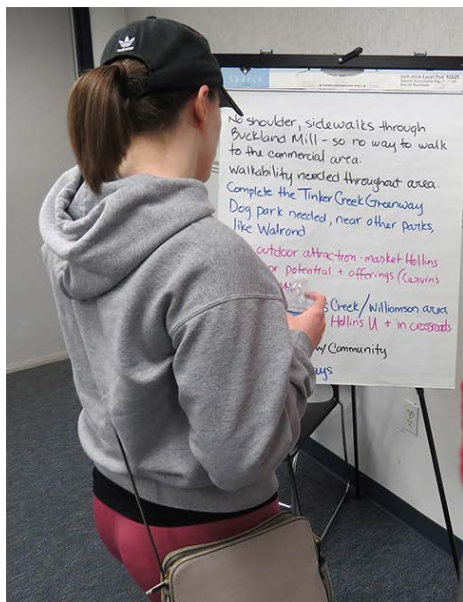 Sparco
No shoulder, sidewalks through
Buckland Mill - so no way to walk
to the commercial area.
Walkability needed throughout area.
Complete the Tinker Creek Greenway
Dog park needed, near other parks,
like Walrond
outdoor attraction - market Hollins
or potential + offerings (Carvin's
Creek/Williamson area
Hollins U + in crossroads
/Community